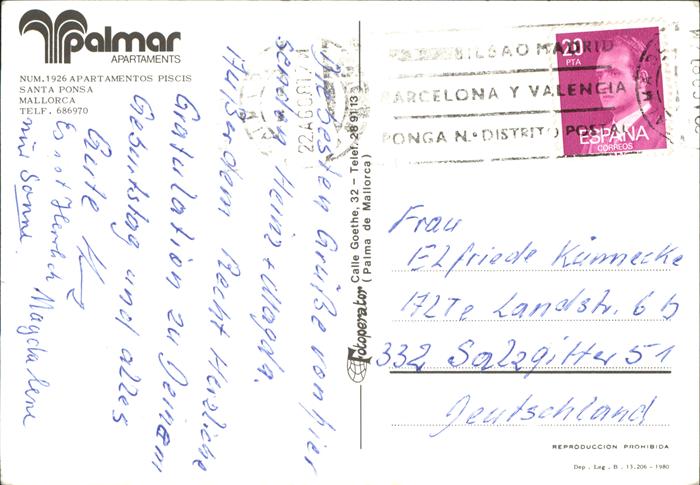 palmar
APARTAMENTS
NUM. 1926 APARTAMENTOS PISCIS
SANTA PONSA
MALLORCA
TELF. 686970
Die besten Grüße von hier
senden Heinz + Magda.
Außerdem Recht Herzliche
Gratulation zu Deinem
Geburtstag und alles
Gute
Es ist Herrlich
nur Sonne. Magdalene
Fotoperator Calle Goethe, 32 - Telef. 28 91 13
(Palma de Mallorca)
22 AGO 81
BILBAO MADRID
BARCELONA Y VALENCIA
PONGA N.º DISTRITO POSTAL
20
PTA
ESPAÑA
CORREOS
Frau
Elfriede Künnecke
Landstr. 6b
332 Salzgitter 51
Deutschland
REPRODUCCION PROHIBIDA
Dep. Leg. B. 13.206 - 1980